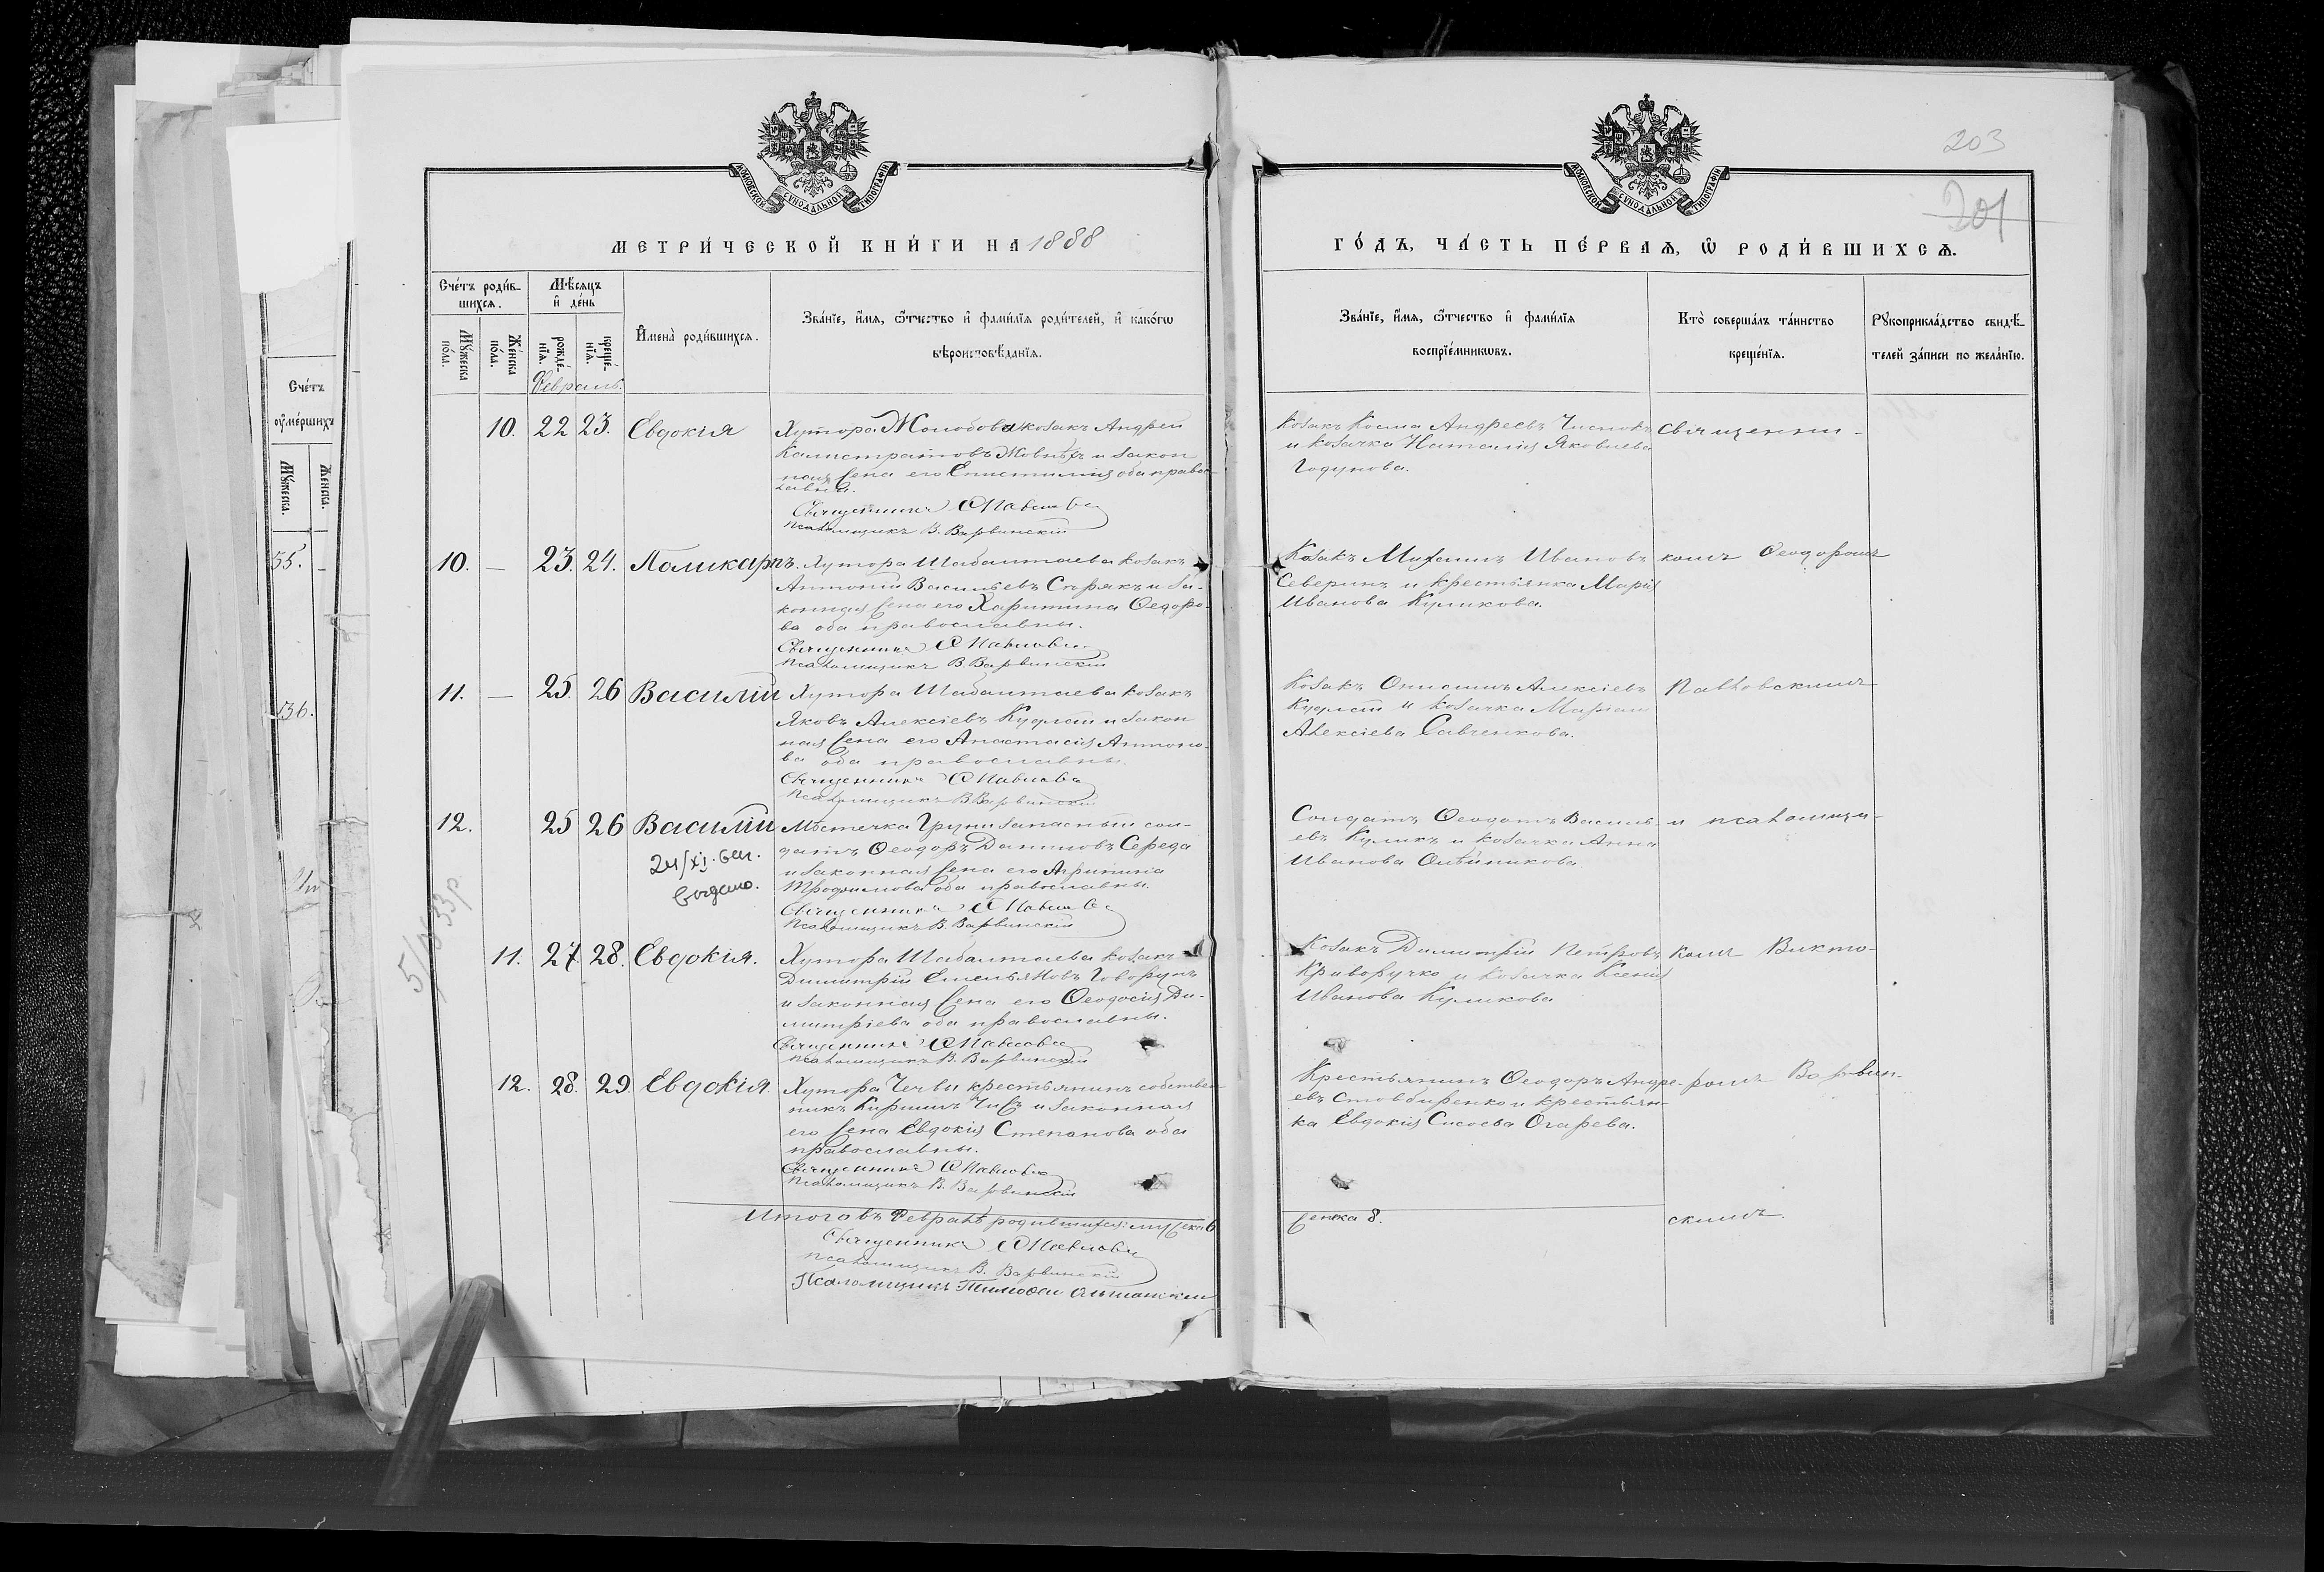 203
201
МОСКОВСКОЙ СѴНОДАЛЬНОЙ ТИПОГРАФІИ
МОСКОВСКОЙ СѴНОДАЛЬНОЙ ТИПОГРАФІИ
МЕТРИ́ЧЕСКОЙ КНИ́ГИ НА 1888
ГО́ДЪ, ЧА́СТЬ ПЕ́РВАѦ, Ѿ РОДИ́ВШИХСѦ.
Сче́тъ роди́в-
шихсѧ.
Мѣ́сѧцъ
и де́нь
Мꙋ́жеска по́ла.
Же́нска по́ла.
рожде́-нїѧ.
креще́-нїѧ.
Имена̀ роди́вшихсѧ.
Зва́нїе, и́мѧ, ѻ҆́тчество и фами́лїѧ роди́телей, и како́гѡ
вѣроисповѣ́данїѧ.
Зва́нїе, и́мѧ, ѻ҆́тчество и фами́лїѧ
воспрїе́мникѡвъ.
Кто̀ соверша́лъ та́инство
креще́нїѧ.
Рꙋкоприкла́дство свидѣ́-
телей за́писи по жела́нїю.
Сче́тъ
ᲂумершихъ
Мꙋжеска.
Женска.
55.
136.
Февраль.
10. 22 23. Евдокія
Хутора козакъ Андрей
Калистратовъ и закон
ная жена его Епистимія оба право-
славны.
Священникъ Ѳ Павловс
Псаломщикъ В. Варвинскій
Козакъ Косма Андреевъ
и козачка Наталія Яковлева
Годунова.
Священни-
10. — 23. 24. Поликарпъ.
Хутора Шабалтаева козакъ
Антоній Васильевъ и за-
конная жена его Харитина Ѳедоро-
ва оба православны.
Священникъ Ѳ Павловс
Псаломщикъ В. Варвинскій
Козакъ Михаилъ Ивановъ
Северинъ и крестьянка Марія
Иванова Куликова.
комъ Ѳеодоромъ
11. — 25. 26 Василій
Хутора Шабалтаева козакъ
Яковъ Алексіевъ и закон
ная жена его Анастасія Антоно-
ва оба православны.
Священникъ Ѳ Павловс
Псаломщикъ В Варвинскій
Козакъ Онисимъ Алексіевъ
и козачка Маріам
Алексіева Савченкова.
Павловскимъ
12. 25 26 Василій
24/XI
выдано.
Мѣстечка Груни запасный сол-
датъ Ѳеодоръ Даниловъ Середа
и законная жена его Агрипина
Трофимова оба православны.
Священникъ Ѳ Павловс
Псаломщикъ В. Варвинскій
Солдатъ Ѳеодотъ Василь-
евъ Куликъ и козачка Анна
Иванова Олѣйникова.
и псаломщи-
11. 27. 28. Евдокія.
Хутора Шабалтаева козакъ
Димитрій Емельяновъ Говорунъ
и законная жена его Ѳеодосія Ди-
митріева оба православны.
Священникъ Ѳ Павловс
Псаломщикъ В. Варвинскій
Козакъ Димитрій Петровъ
Криворучко и козачка Ксенія
Иванова Куликова
комъ Викто-
12. 28. 29 Евдокія.
Хутора Чечвы крестьянинъ собствен-
никъ и законная
его жена Евдокія Степанова оба
православны.
Священникъ Ѳ Павловс
Псаломщикъ В. Варвинскій
Крестьянинъ Ѳеодоръ Андре-
евъ Стовбиренко и крестьян-
ка Евдокія Сисоева Огарева.
ромъ Варвин-
Итого въ Февралѣ родившихся: мужеска 6
женска 8.
скимъ.
Священникъ Ѳ Павловс
Псаломщикъ В. Варвинскій
Псаломщикъ Тимофей Ольшанскій